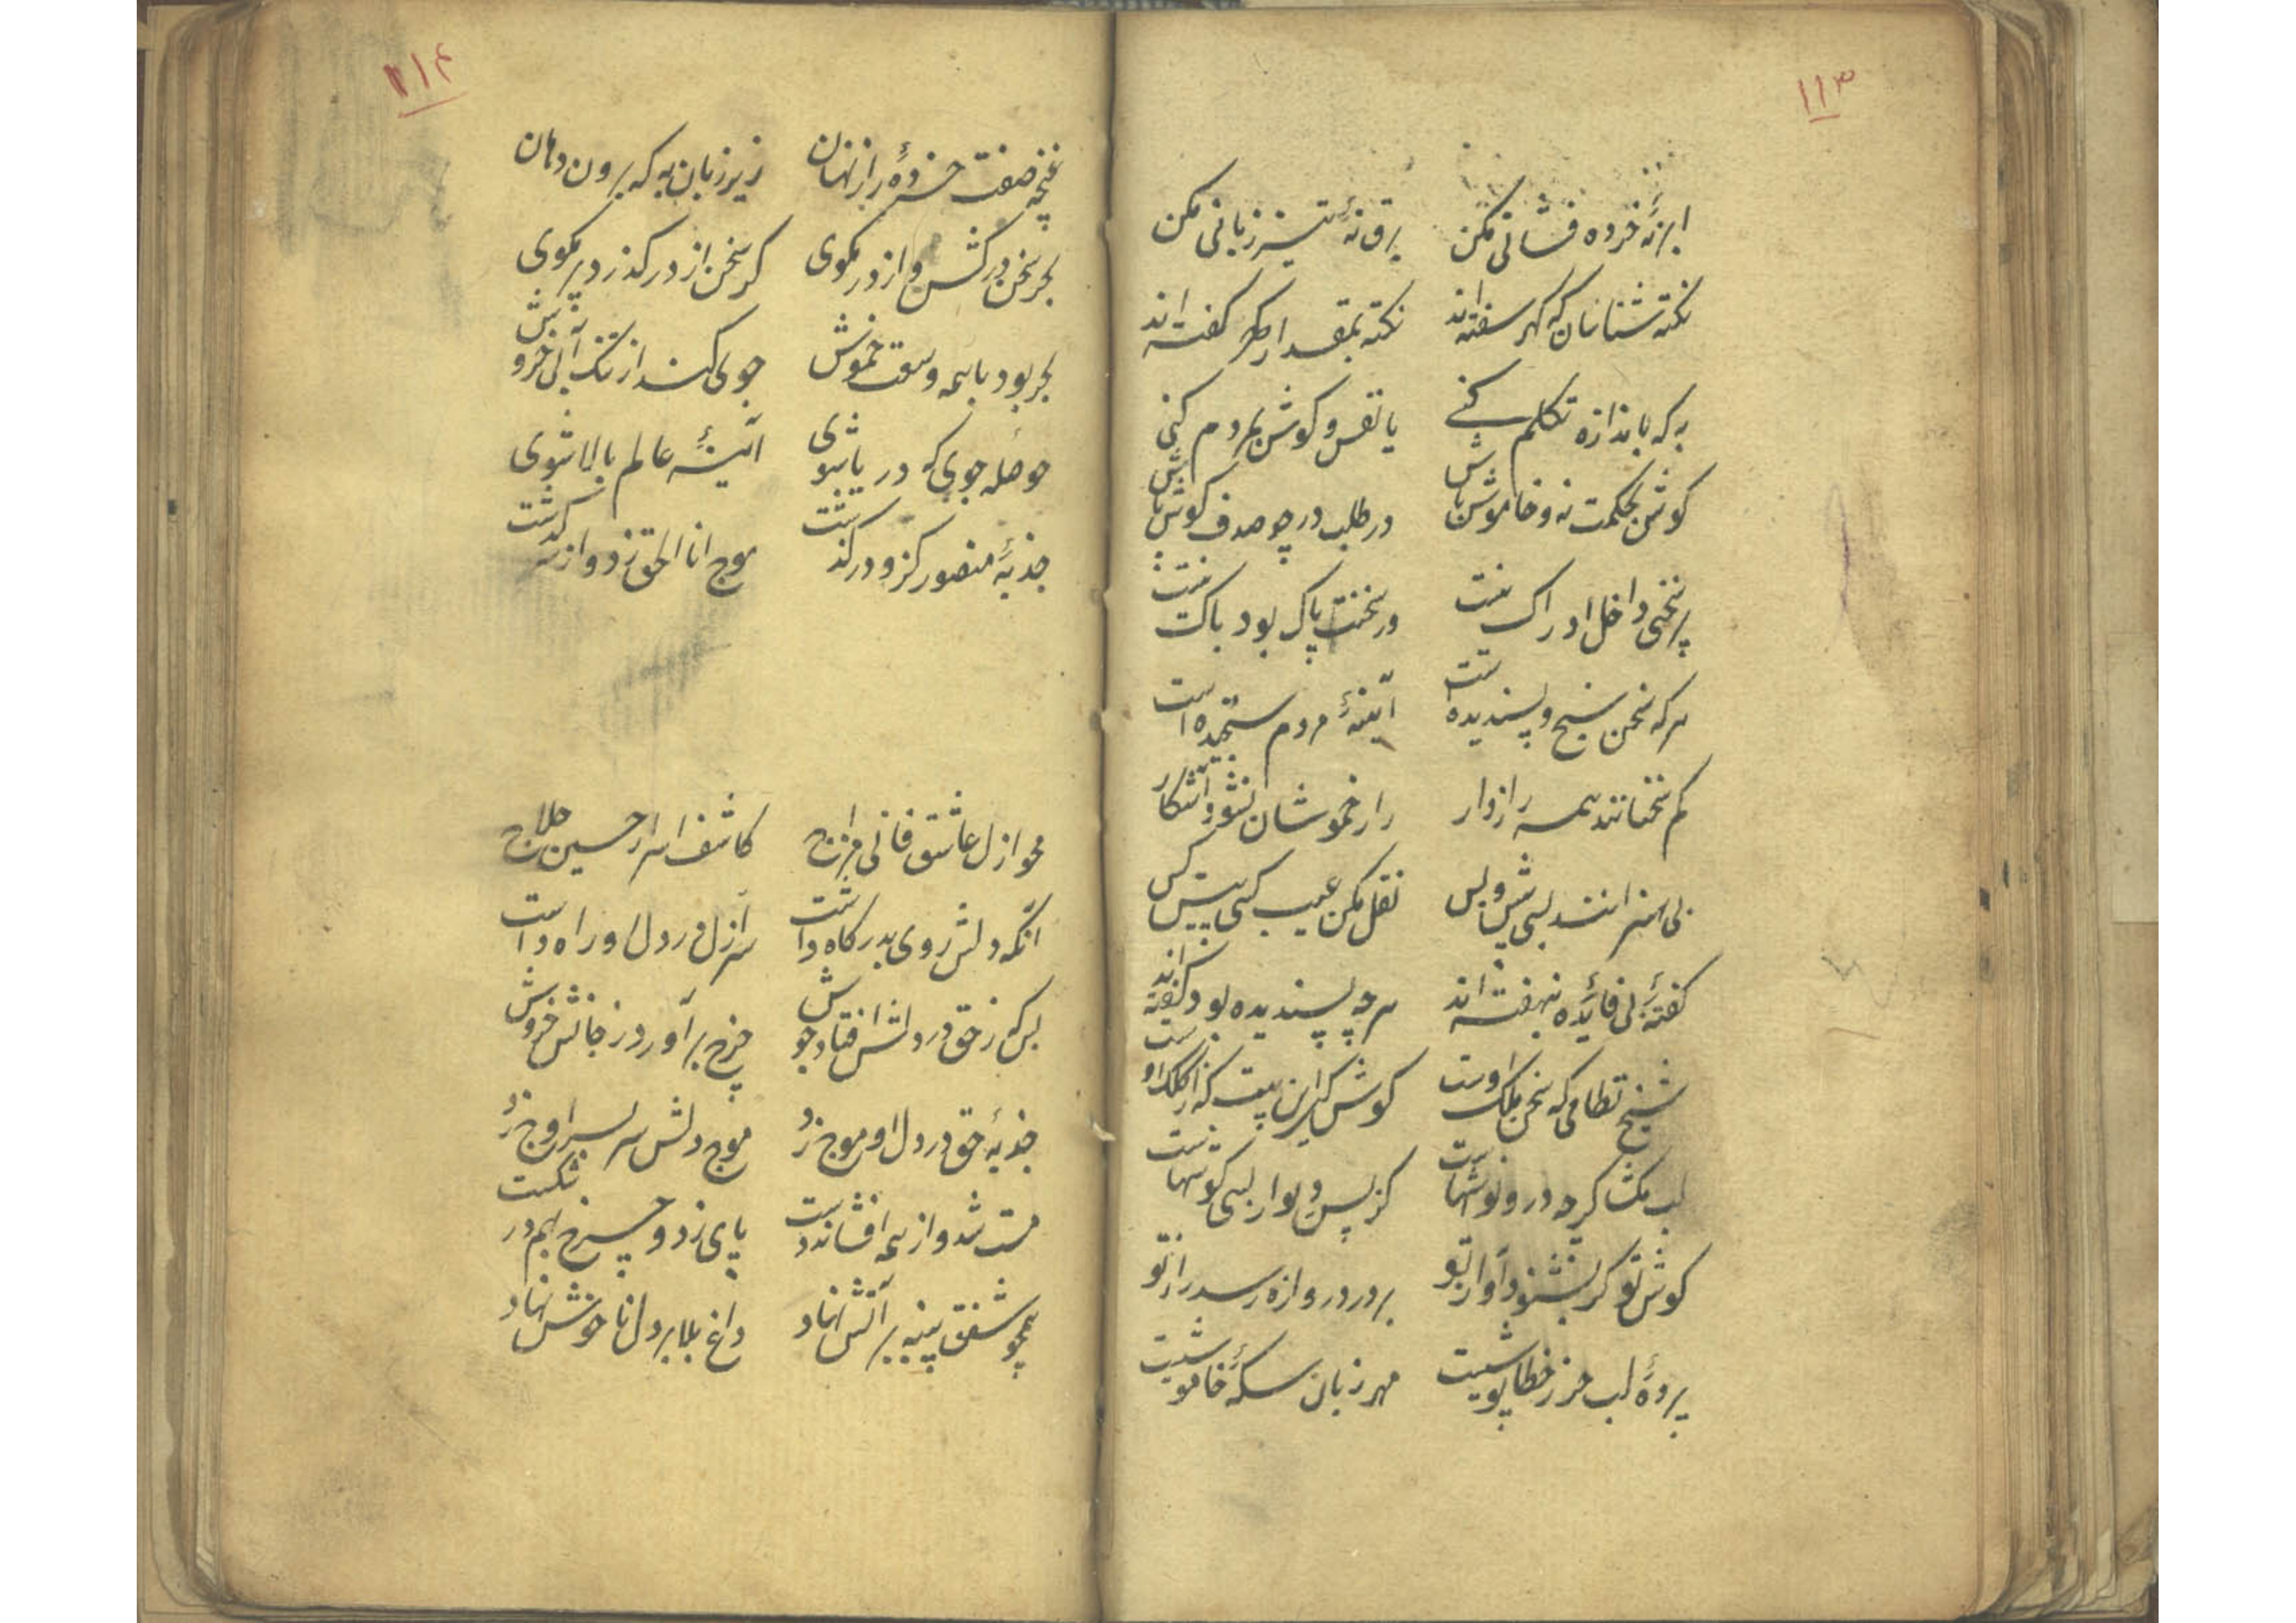 ۱۱۳
ابر نهٔ خرده فشانی مکن برق نهٔ تیز زبانی مکن
نکته شناسان که گهر سفته‌اند نکته بمقدار گفته‌اند
به که باندازه تکلم کنی یا نفس و گوش مردم کنی
گوش بحکمت نه و خاموش باش در طلب در چو صدف گوش باش
پر سخنی داخل ادراک نیست ور سخنت پاک بود باک نیست
هر که سخن سنج و پسندیده است آینهٔ مردم سنجیده است
کم سخنانند همه رازدار راز خموشان نشود آشکار
بی هنرانند بسی پیش و پس نقل مکن عیب کسی پیش کس
گفتهٔ بی فایده نهفته‌اند هرچه پسندیده بود گفته‌اند
شیخ نظامی که سخن ملک اوست گوش کن این بیت که از کلک اوست
لب مگشا گرچه درو نوشهاست کز پس دیوار بسی گوشهاست
گوش تو گر بشنود آواز تو بر در دروازه رسد راز تو
پردهٔ لب حرز خطاپوشیست مهر زبان سکهٔ خاموشیست
۱۱۴
غنچه صفت خردهٔ راز نهان زیر زبان به که برون دهان
بحر سخن درکش و از در مگوی گر سخن از در گذرد پر مگوی
بحر بود با همه وسعت خموش جوی کند از تنک آبی خروش
حوصله جوی که دریا شوی آینهٔ عالم بالا شوی
جذبهٔ منصور کزو درگذشت موج انا الحق زد و از سر گذشت
محو ازل عاشق فانی مزاج کاشف اسرار حسین حلاج
آنکه دلش روی بدرگاه داشت سر ازل در دل او راه داشت
بس که ز حق در دلش افتاد جوش چرخ برآورد ز جانش خروش
جذبهٔ حق در دل او موج زد موج دلش سر بسر اوج زد
مست شد و از همه افشاند دست پای زد و چرخ بهم در شکست
همچو شفق پنبه بر آتش نهاد داغ بلا بر دل ناخوش نهاد